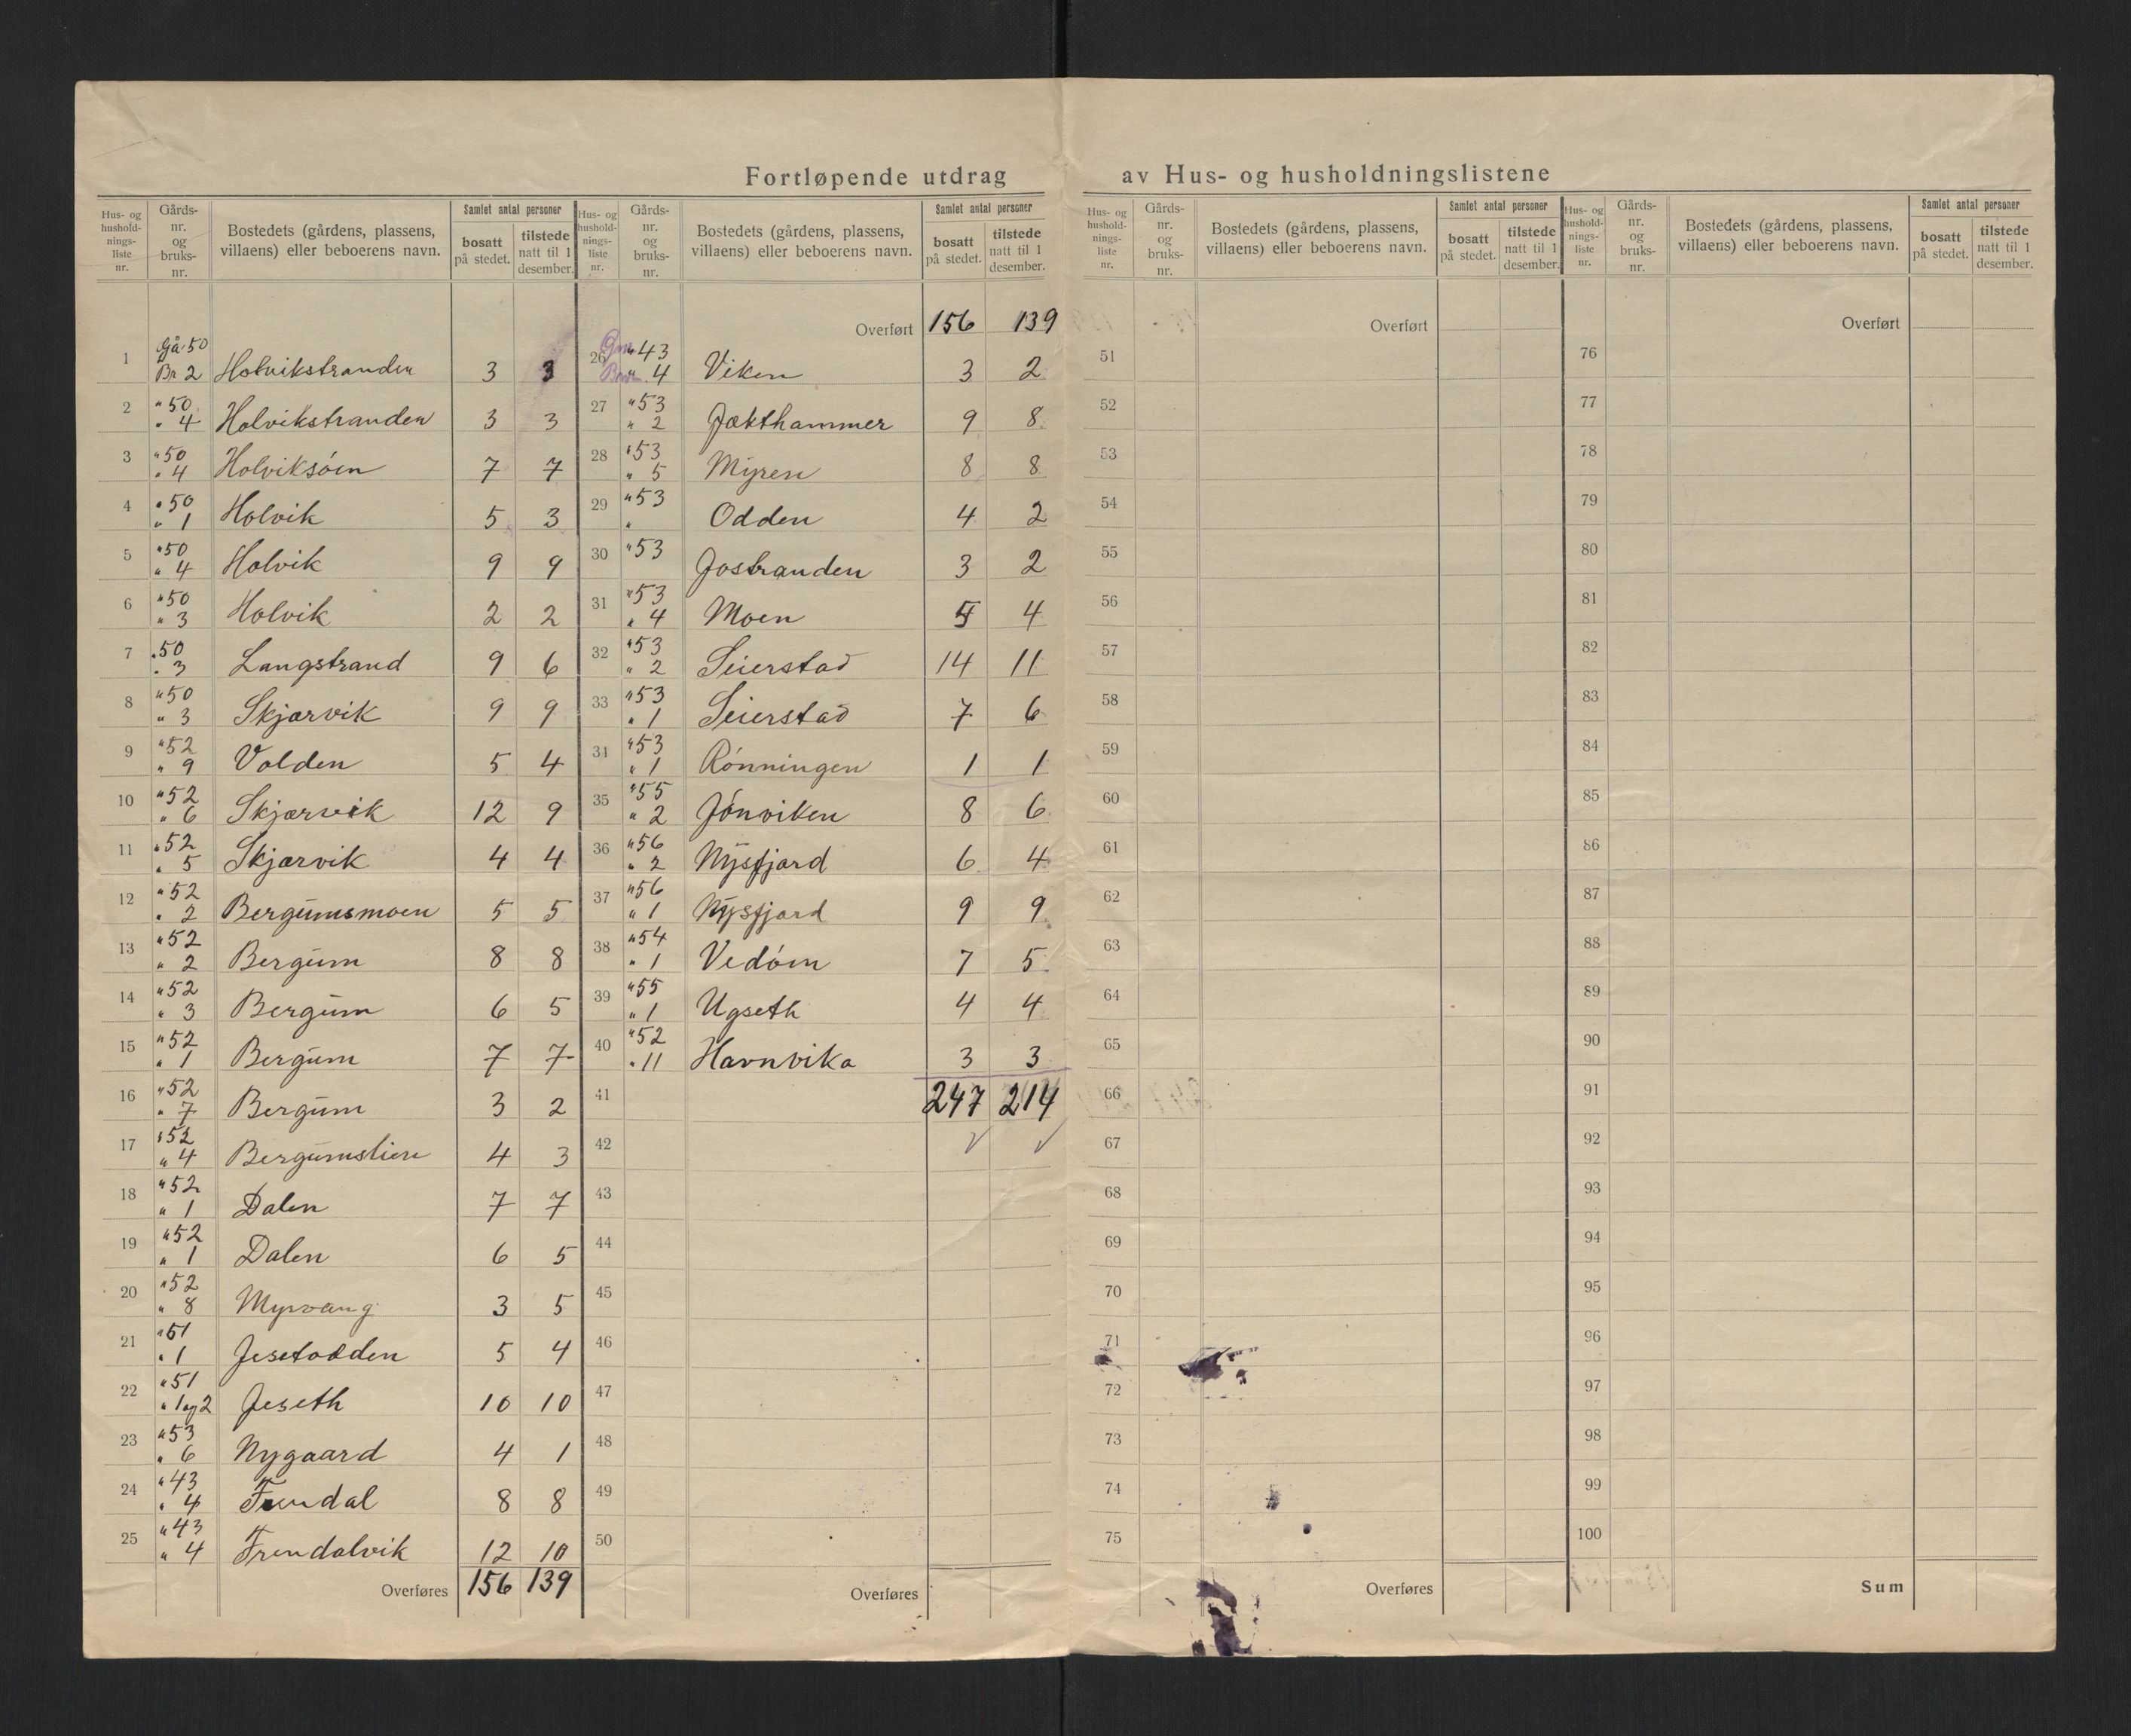 Fortløpende utdrag av Hus- og husholdningslistene
Hus- og hushold-nings-liste nr. Gårds-nr. og bruks-nr. Bostedets (gårdens, plassens, villaens) eller beboerens navn. Samlet antal personer bosatt på stedet. tilstede natt til 1 desember.
1 Gå 50 Br 2 Holvikstranden 3 3
2 " 50 " 4 Holvikstranden 3 3
3 " 50 " 4 Holviksöen 7 7
4 " 50 " 1 Holvik 5 3
5 " 50 " 4 Holvik 9 9
6 " 50 " 3 Holvik 2 2
7 " 50 " 3 Langstrand 9 6
8 " 50 " 3 Skjærvik 9 9
9 " 52 " 9 Volden 5 4
10 " 52 " 6 Skjærvik 12 9
11 " 52 " 5 Skjærvik 4 4
12 " 52 " 2 Bergumsmoen 5 5
13 " 52 " 2 Bergum 8 8
14 " 52 " 3 Bergum 6 5
15 " 52 " 1 Bergum 7 7
16 " 52 " 7 Bergum 3 2
17 " 52 " 4 Bergumslien 4 3
18 " 52 " 1 Dalen 7 7
19 " 52 " 1 Dalen 6 5
20 " 52 " 8 Myrvang 3 5
21 " 51 " 1 Jesetodden 5 4
22 " 51 " 1 og 2 Jeseth 10 10
23 " 53 " 6 Nygaard 4 1
24 " 43 " 4 Frendal 8 8
25 " 43 " 4 Frendalvik 12 10
Overføres 156 139
Hus- og hushold-nings-liste nr. Gårds-nr. og bruks-nr. Bostedets (gårdens, plassens, villaens) eller beboerens navn. Samlet antal personer bosatt på stedet. tilstede natt til 1 desember.
Overført 156 139
26 " 43 " 4 Viken 3 2
27 " 53 " 2 Jækthammer 9 8
28 " 53 " 5 Myren 8 8
29 " 53 " Odden 4 2
30 " 53 Jostranden 3 2
31 " 53 " 4 Moen 5 4
32 " 53 " 2 Seierstad 14 11
33 " 53 " 1 Seierstad 7 6
34 " 53 " 1 Rönningen 1 1
35 " 55 " 2 Jönviken 8 6
36 " 56 " 2 Nysfjord 6 4
37 " 56 " 1 Nysfjord 9 9
38 " 54 " 1 Vedöm 7 5
39 " 55 " 1 Ugseth 4 4
40 " 52 " 11 Havnvika 3 3
41 247 214
42
43
44
45
46
47
48
49
50
Overføres
Hus- og hushold-nings-liste nr. Gårds-nr. og bruks-nr. Bostedets (gårdens, plassens, villaens) eller beboerens navn. Samlet antal personer bosatt på stedet. tilstede natt til 1 desember.
Overført
51
52
53
54
55
56
57
58
59
60
61
62
63
64
65
66
67
68
69
70
71
72
73
74
75
Overføres
Hus- og hushold-nings-liste nr. Gårds-nr. og bruks-nr. Bostedets (gårdens, plassens, villaens) eller beboerens navn. Samlet antal personer bosatt på stedet. tilstede natt til 1 desember.
Overført
76
77
78
79
80
81
82
83
84
85
86
87
88
89
90
91
92
93
94
95
96
97
98
99
100
Sum